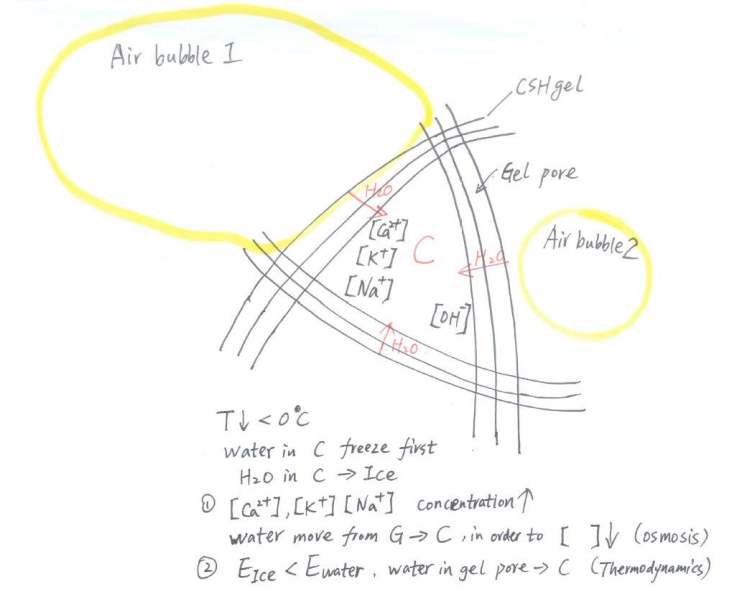 Air bubble 1
CSH gel
Gel pore
H2O
[Ca2+]
[K+]
C
[Na+]
H2O
Air bubble 2
[OH-]
H2O
T↓ < 0°C
water in C freeze first
H2O in C → Ice
① [Ca2+], [K+] [Na+] concentration↑
water move from G → C, in order to [ ]↓ (osmosis)
② EIce < Ewater, water in gel pore → C (Thermodynamics)